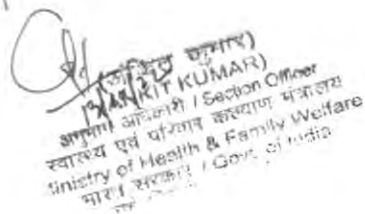 कुमार)
KUMAR)
अनुभाग अधिकारी / Section Officer
स्वास्थ्य एवं परिवार कल्याण मंत्रालय
Ministry of Health & Family Welfare
भारत सरकार / Govt. of India